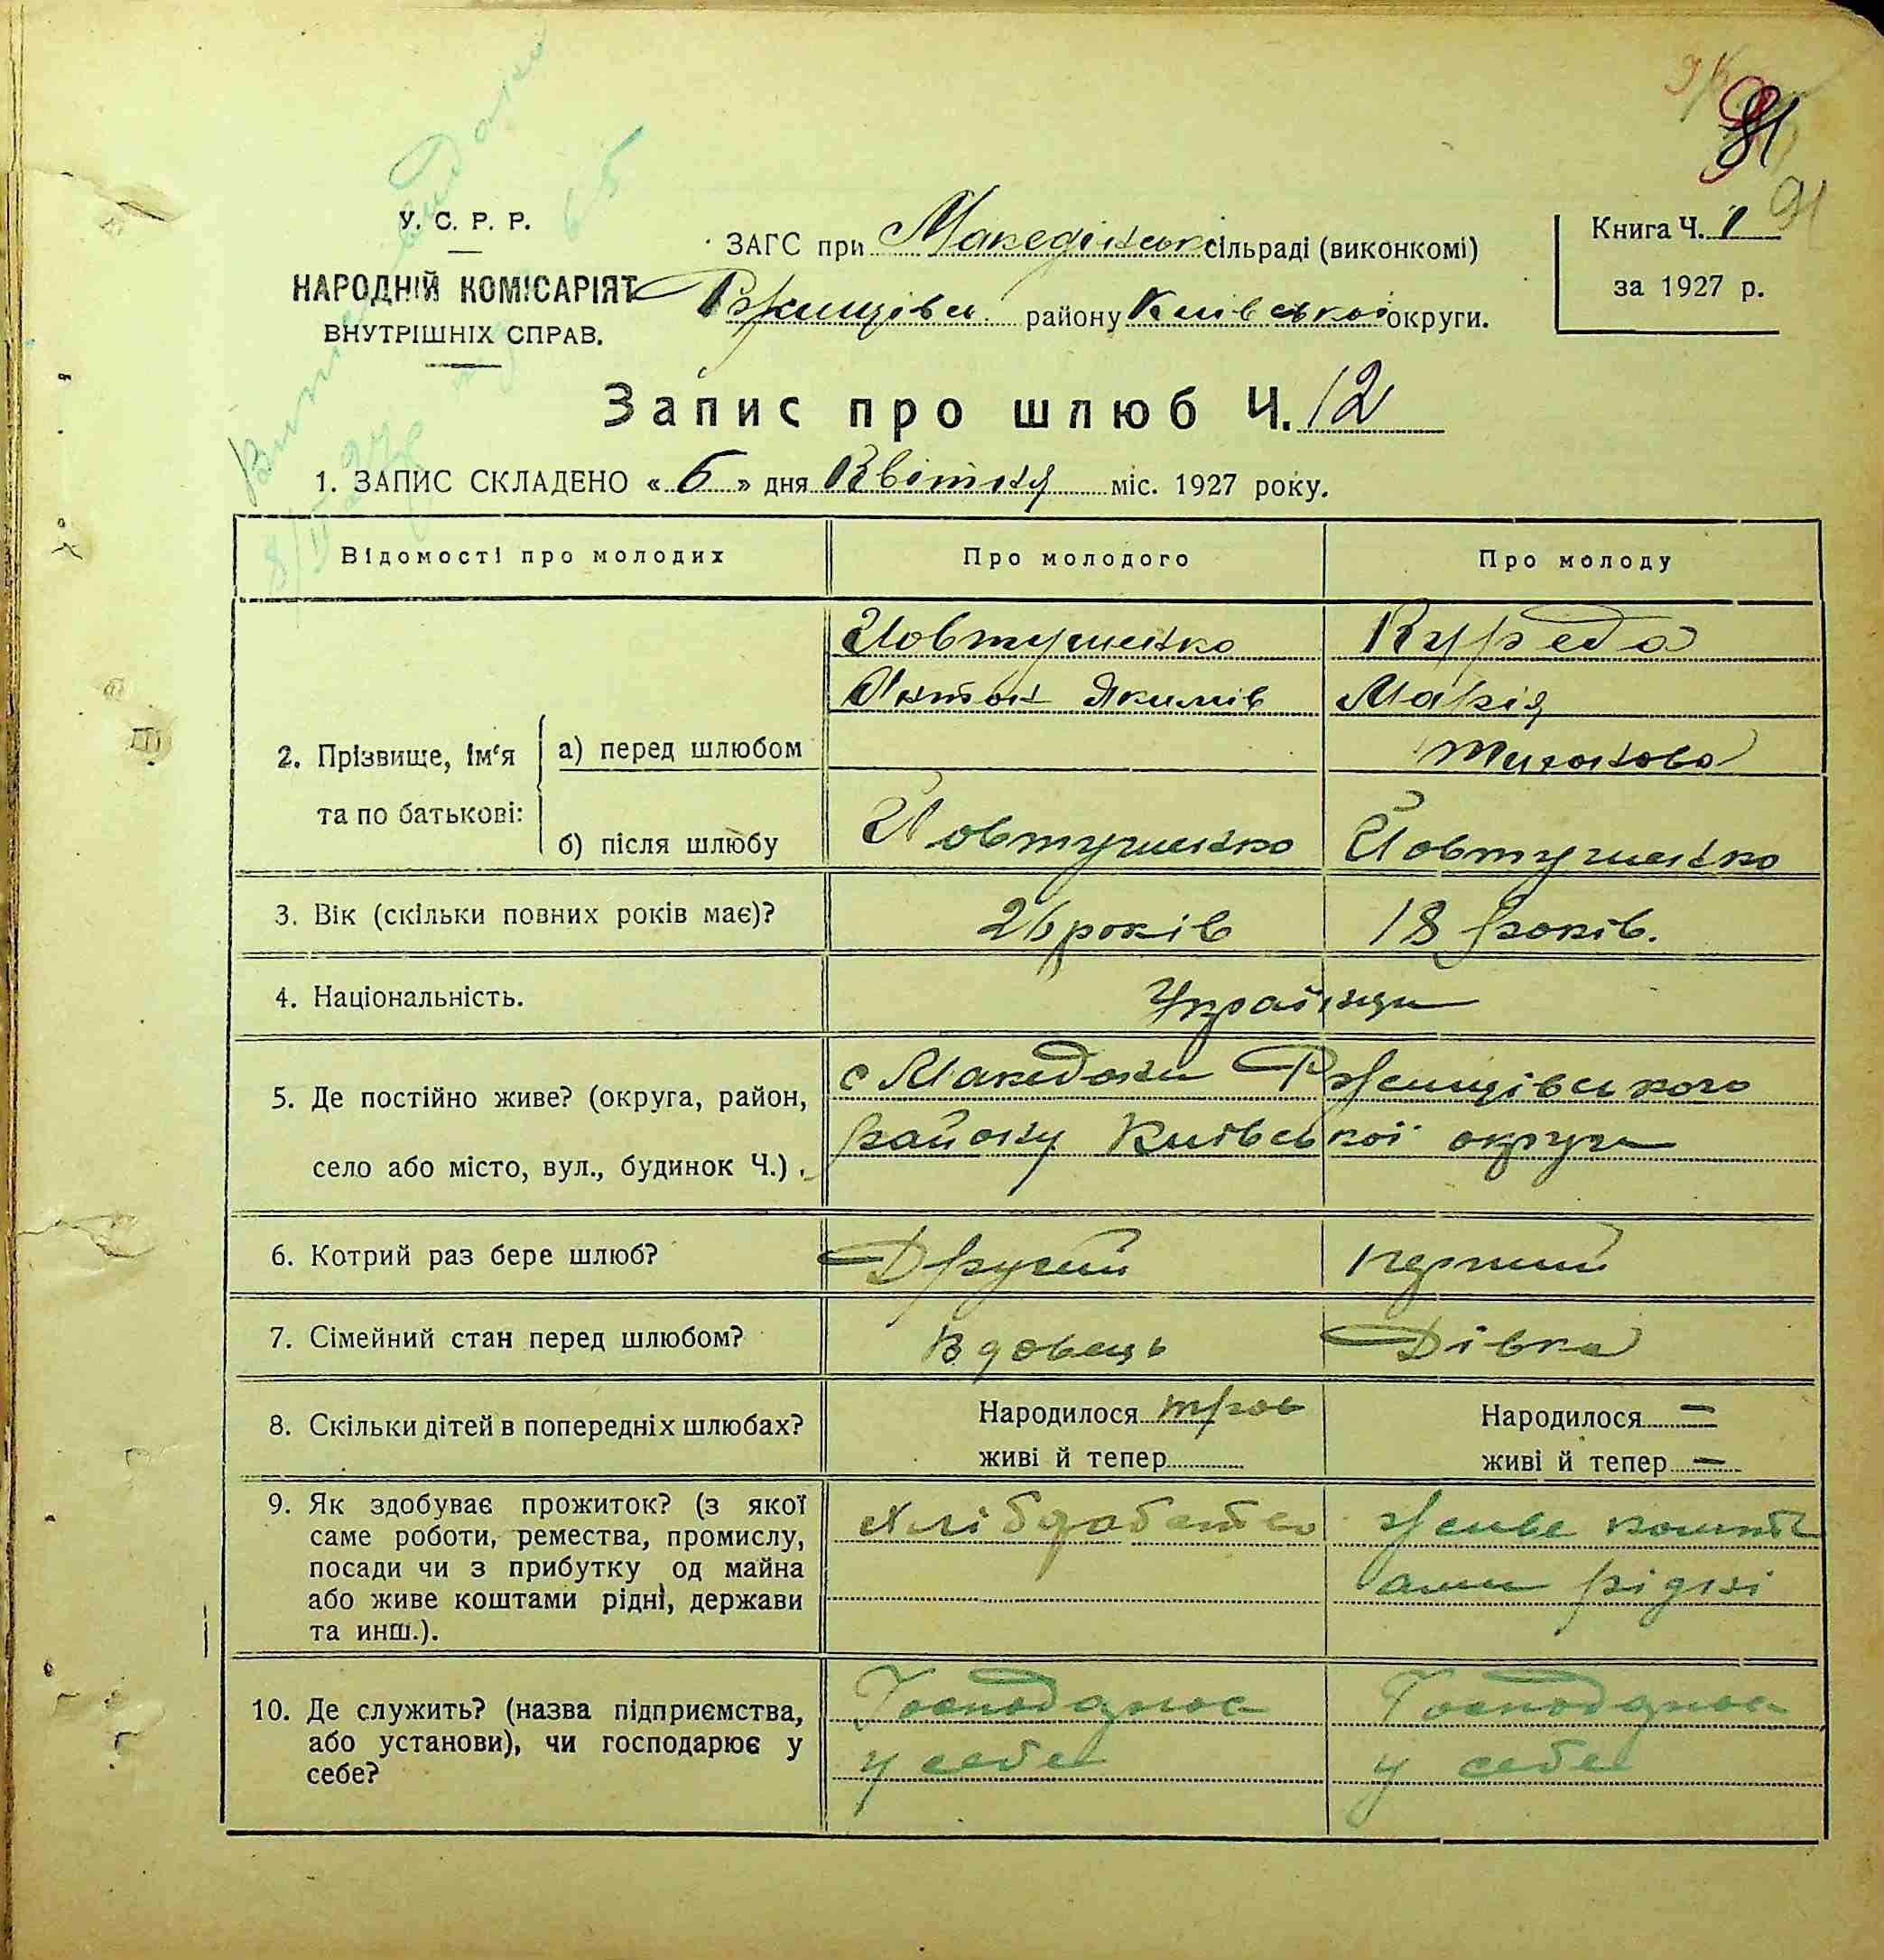 81
91
У. С. Р. Р.
НАРОДНІЙ КОМІСАРІЯТ
ВНУТРІШНІХ СПРАВ.
ЗАГС при Македонській сільраді (виконкомі)
Ржищівськ. району Київської округи.
Книга Ч. 1
за 1927 р.
Запис про шлюб Ч. 12
1. ЗАПИС СКЛАДЕНО « 6 » дня Квітня міс. 1927 року.
Відомості про молодих
Про молодого
Про молоду
2. Прізвище, ім'я та по батькові:
а) перед шлюбом
Йовтушенко
Антон Якимів
Куреда
Марія
б) після шлюбу
Йовтушенко
Йовтушенко
3. Вік (скільки повних років має)?
26 років
18 років.
4. Національність.
Українци
5. Де постійно живе? (округа, район,
село або місто, вул., будинок Ч.).
с Македони Ржищівського
району Київської округи
6. Котрий раз бере шлюб?
Другий
перший
7. Сімейний стан перед шлюбом?
Вдовець
Дівка
8. Скільки дітей в попередніх шлюбах?
Народилося троє
живі й тепер
Народилося —
живі й тепер —
9. Як здобуває прожиток? (з якої
саме роботи, ремества, промислу,
посади чи з прибутку од майна
або живе коштами рідні, держави
та инш.).
Хлібдобатво
живе кошт
ами рідні
10. Де служить? (назва підприємства,
або установи), чи господарює у
себе?
у себе
у себе